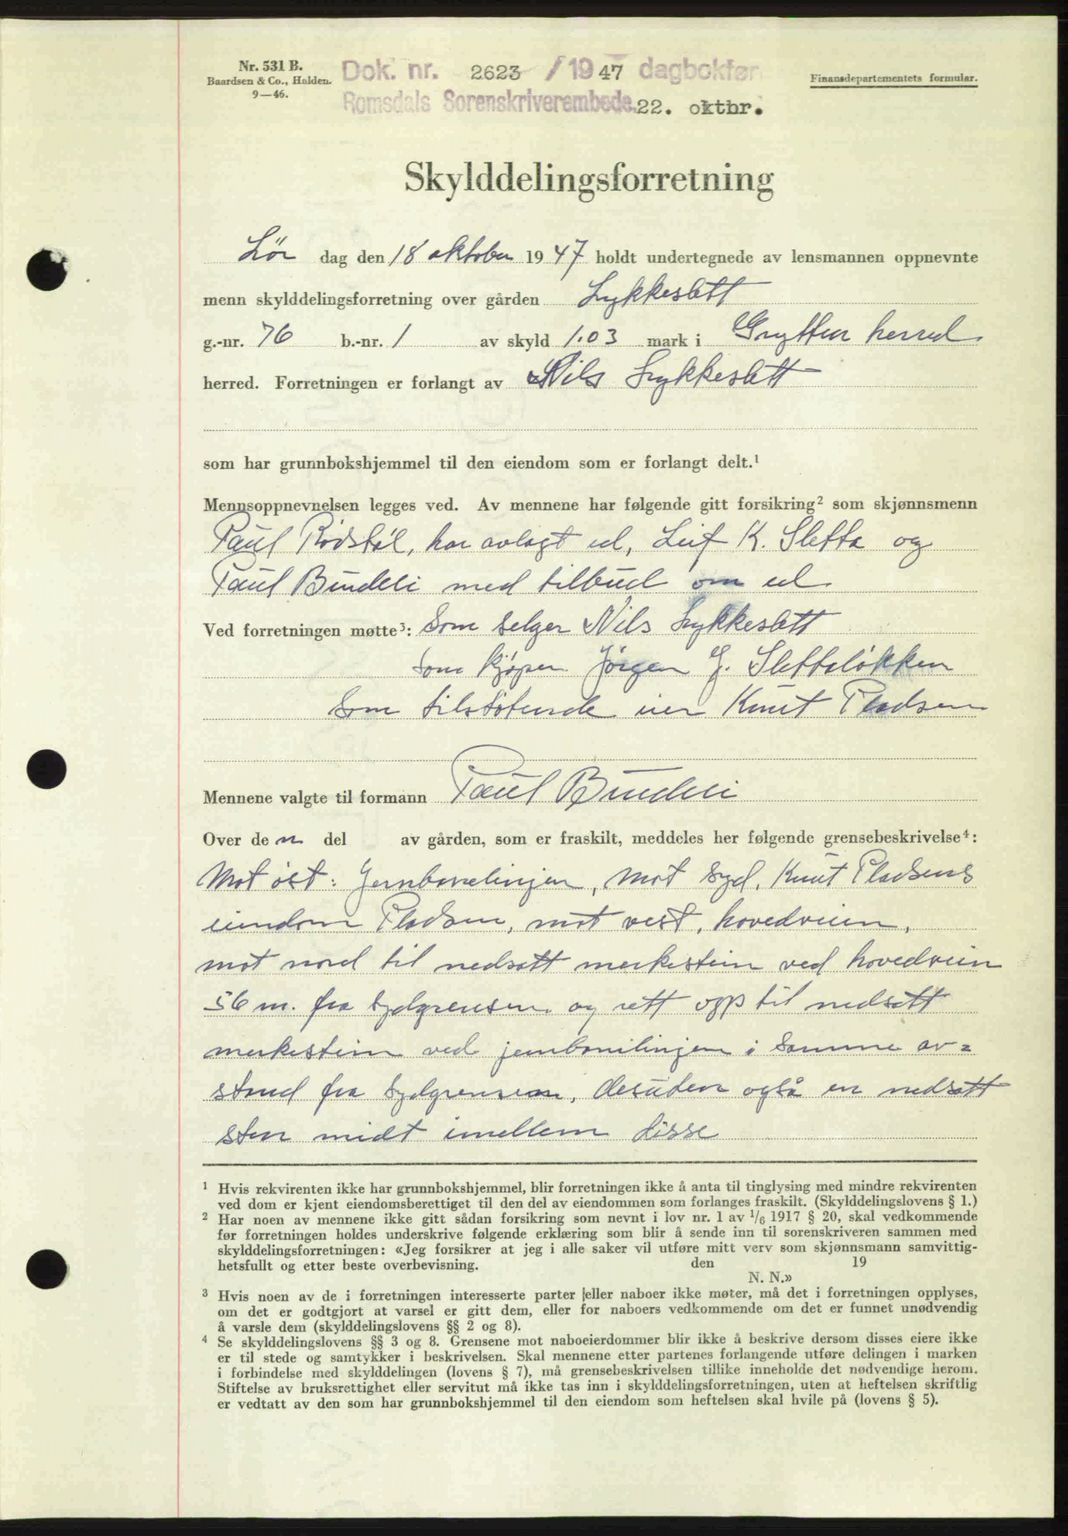 Nr. 531 B.
Baardsen & Co., Halden.
9—46.
Dok. nr. 2623 / 1947 dagbokfør
Romsdals Sorenskriverembede. 22. oktbr.
Finansdepartementets formular.
Skylddelingsforretning
Lør dag den 18 oktober 1947 holdt undertegnede av lensmannen oppnevnte
menn skylddelingsforretning over gården Lykkeslett
g.-nr. 76 b.-nr. 1 av skyld 1.03 mark i Grytten herred
herred. Forretningen er forlangt av Nils Lykkeslett
som har grunnbokshjemmel til den eiendom som er forlangt delt.¹
Mennsoppnevnelsen legges ved. Av mennene har følgende gitt forsikring² som skjønnsmenn
Paul Rødstøl, har avlagt ed, Leif K. Sletta og
Paul Bindeli med tilbud om ed
Ved forretningen møtte³: Som selger Nils Lykkeslett
Som kjøper Jørgen G. Slettaløkken
Som tilstøtende eier Knut Pladsen
Mennene valgte til formann Paul Bindeli
Over den del av gården, som er fraskilt, meddeles her følgende grensebeskrivelse⁴:
Mot øst: Jernbanelinjen, mot syd, Knut Pladsens
eiendom Pladsen, mot vest, hovedveien,
mot nord til nedsatt merkestein ved hovedveien
56 m. fra sydgrensen og rett opp til nedsatt
merkestein ved jernbanelinjen i samme av=
stand fra sydgrensen, desuten også en nedsatt
sten midt imellem disse
¹ Hvis rekvirenten ikke har grunnbokshjemmel, blir forretningen ikke å anta til tinglysing med mindre rekvirenten
ved dom er kjent eiendomsberettiget til den del av eiendommen som forlanges fraskilt. (Skylddelingslovens § 1.)
² Har noen av mennene ikke gitt sådan forsikring som nevnt i lov nr. 1 av 1/6 1917 § 20, skal vedkommende
før forretningen holdes underskrive følgende erklæring som blir å sende inn til sorenskriveren sammen med
skylddelingsforretningen: «Jeg forsikrer at jeg i alle saker vil utføre mitt verv som skjønnsmann samvittig-
hetsfullt og etter beste overbevisning. den 19
N. N.»
³ Hvis noen av de i forretningen interesserte parter eller naboer ikke møter, må det i forretningen opplyses,
om det er godtgjort at varsel er gitt dem, eller for naboers vedkommende om det er funnet unødvendig
å varsle dem (skylddelingslovens §§ 2 og 8).
⁴ Se skylddelingslovens §§ 3 og 8. Grensene mot naboeierdommer blir ikke å beskrive dersom disses eiere ikke
er til stede og samtykker i beskrivelsen. Skal mennene etter partenes forlangende utføre delingen i marken
i forbindelse med skylddelingen (lovens § 7), må grensebeskrivelsen tillike inneholde det nødvendige herom.
Stiftelse av bruksrettighet eller servitut må ikke tas inn i skylddelingsforretningen, uten at heftelsen skriftlig
er vedtatt av den som har grunnbokshjemmel til den eiendom som heftelsen skal hvile på (lovens § 5).